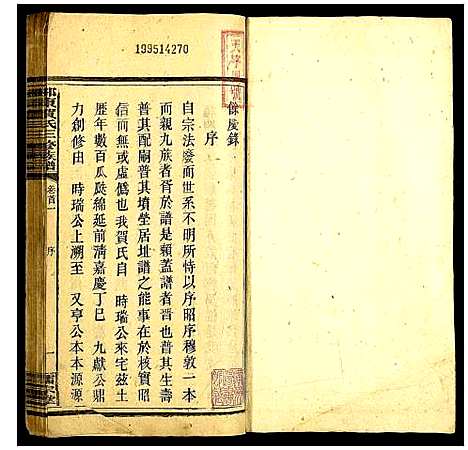 199514270
餘慶錄
序
自宗法廢而世系不明所恃以序昭序穆敦一本
而親九族者胥於譜是賴蓋譜者普也普其生壽
普其配嗣普其墳坐居址譜之能事在於核實昭
信而無或虛僞也我賀氏自 時瑞公來宅茲土
歷年數百瓜瓞綿延前清嘉慶丁巳 九獻公鼎
力創修由 時瑞公上溯至 又亨公本本源源
東賀氏三修族譜
卷首一
序
一